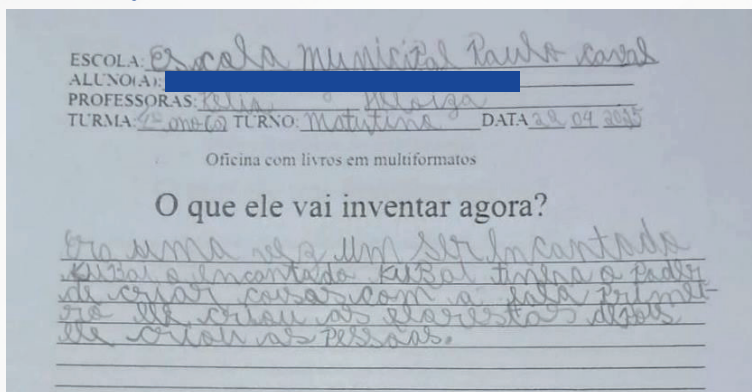 ESCOLA: Escola municipal Paulo caval
ALUNO(A):
PROFESSORAS: Kelia e Heloiza
TURMA: 4º ano (2) TURNO: Matutino DATA 29 04 2025
Oficina com livros em multiformatos
O que ele vai inventar agora?
Era uma vez um ser Incantado
KUBai o Incantado KUBai tinha o Poder
de criar coisas com a fala Primei-
ro ele criou as florestas depois
ele criou as pessoas.